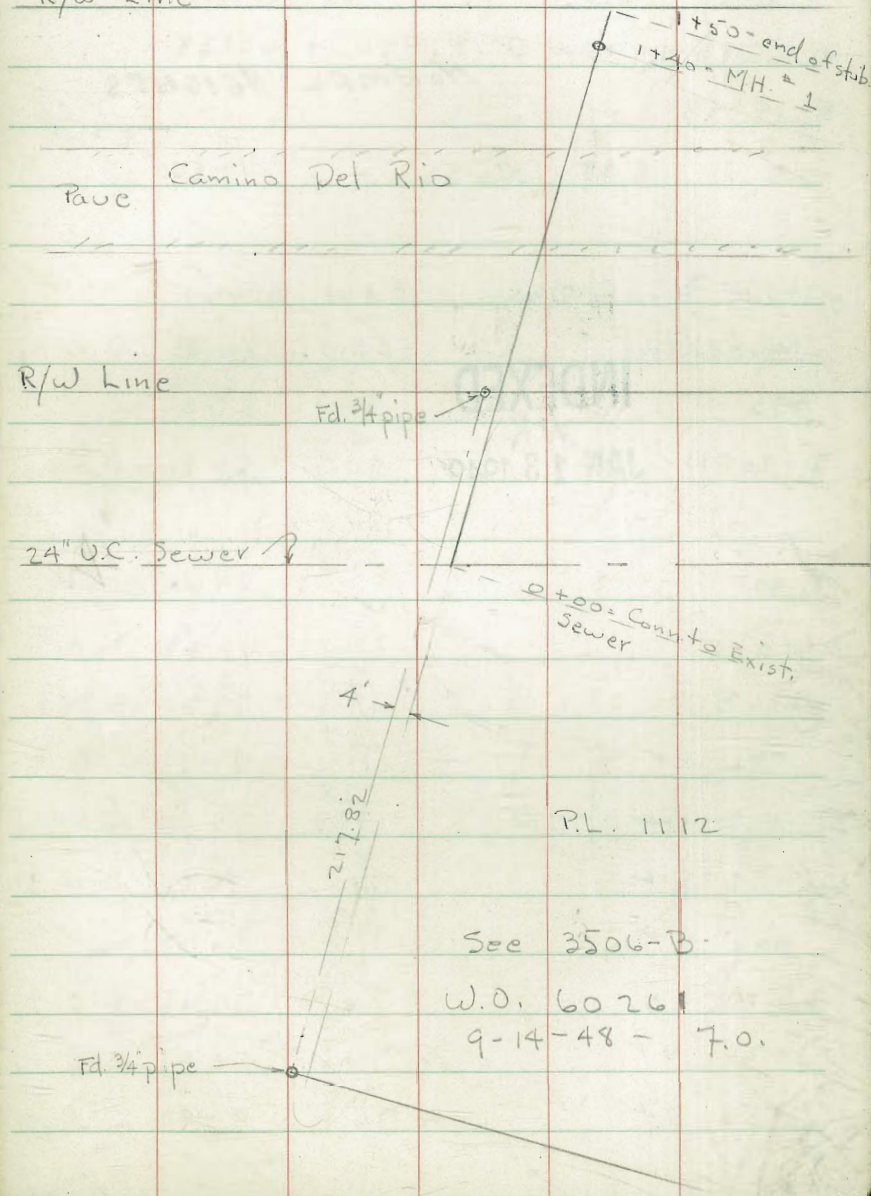 R/W Line
1+50 - end of stub.
1+40 - M.H. # 1
Camino Del Rio
Pave
R/W Line
Fd. 3/4" pipe
INDEXED
JAN 13 1949
24" V.C. Sewer
0+00 = Conn. to Exist.
Sewer
4'
217.82
P.L. 1112
See 3506-B
W.O. 60261
9-14-48 - T.O.
Fd. 3/4" pipe